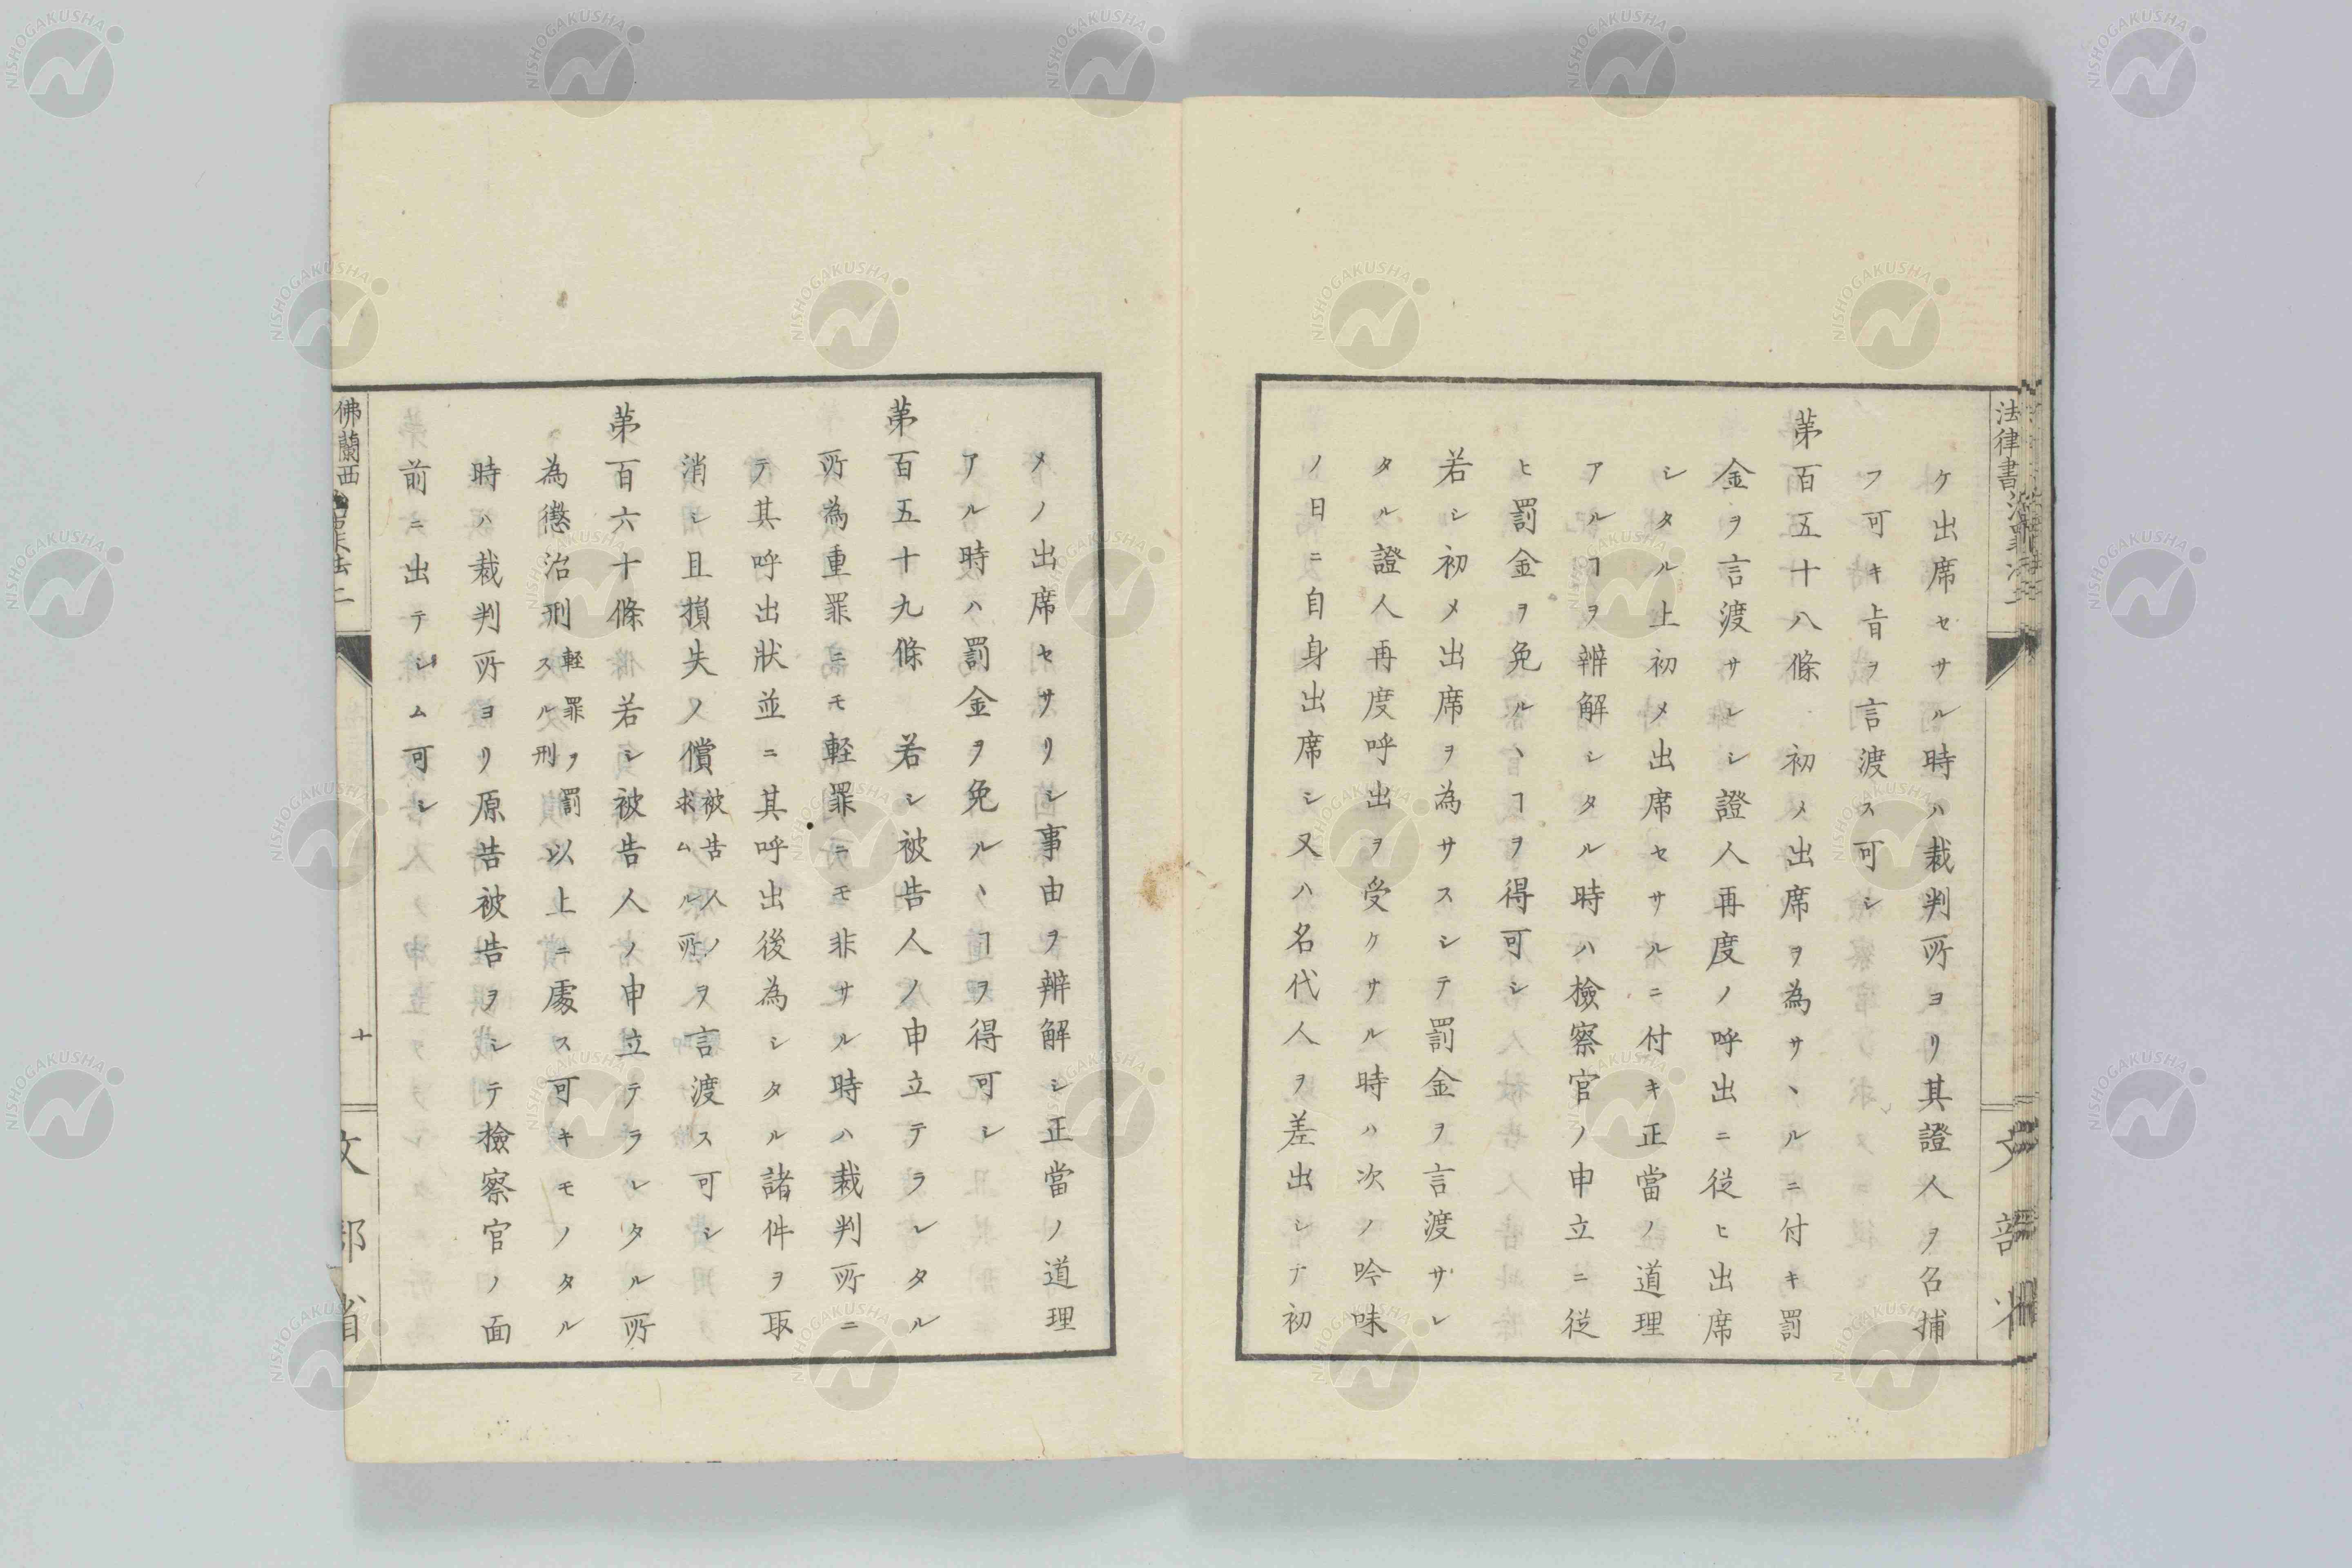 ケ出席セサル時ハ裁判所ヨリ其證人ヲ召捕
フ可キ旨ヲ言渡ス可シ
第百五十八條 初メ出席ヲ為サヽルニ付キ罰
金ヲ言渡サレシ證人再度ノ呼出ニ従ヒ出席
シタル上初メ出席セサルニ付キ正當ノ道理
アルヿヲ辨解シタル時ハ檢察官ノ申立ニ従
ヒ罰金ヲ免ルヽヿヲ得可シ
若シ初メ出席ヲ為サスシテ罰金ヲ言渡サレ
タル證人再度呼出ヲ受ケサル時ハ次ノ吟味
ノ日ニ自身出席シ又ハ名代人ヲ差出シテ初
メノ出席セサリシ事由ヲ辨解シ正當ノ道理
アル時ハ罰金ヲ免ルヽヿヲ得可シ
第百五十九條 若シ被告人ノ申立テラレタル
所為重罪ニモ輕罪ニモ非サル時ハ裁判所ニ
テ其呼出狀並ニ其呼出後為シタル諸件ヲ取
消シ且損失ノ償被告人ノ求ムル所ヲ言渡ス可シ
第百六十條 若シ被告人ノ申立テラレタル所
為懲治刑軽罪ヲ罰スル刑以上ニ處ス可キモノタル
時ハ裁判所ヨリ原告被告ヲシテ檢察官ノ面
前ニ出テシム可シ
法律書
文部省
佛蘭西
二
十
文部省
NISHOGAKUSHA